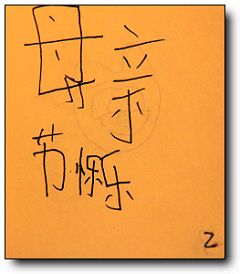 母亲
节快乐
2